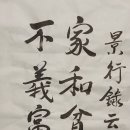 景行錄云
家和貧
不義富